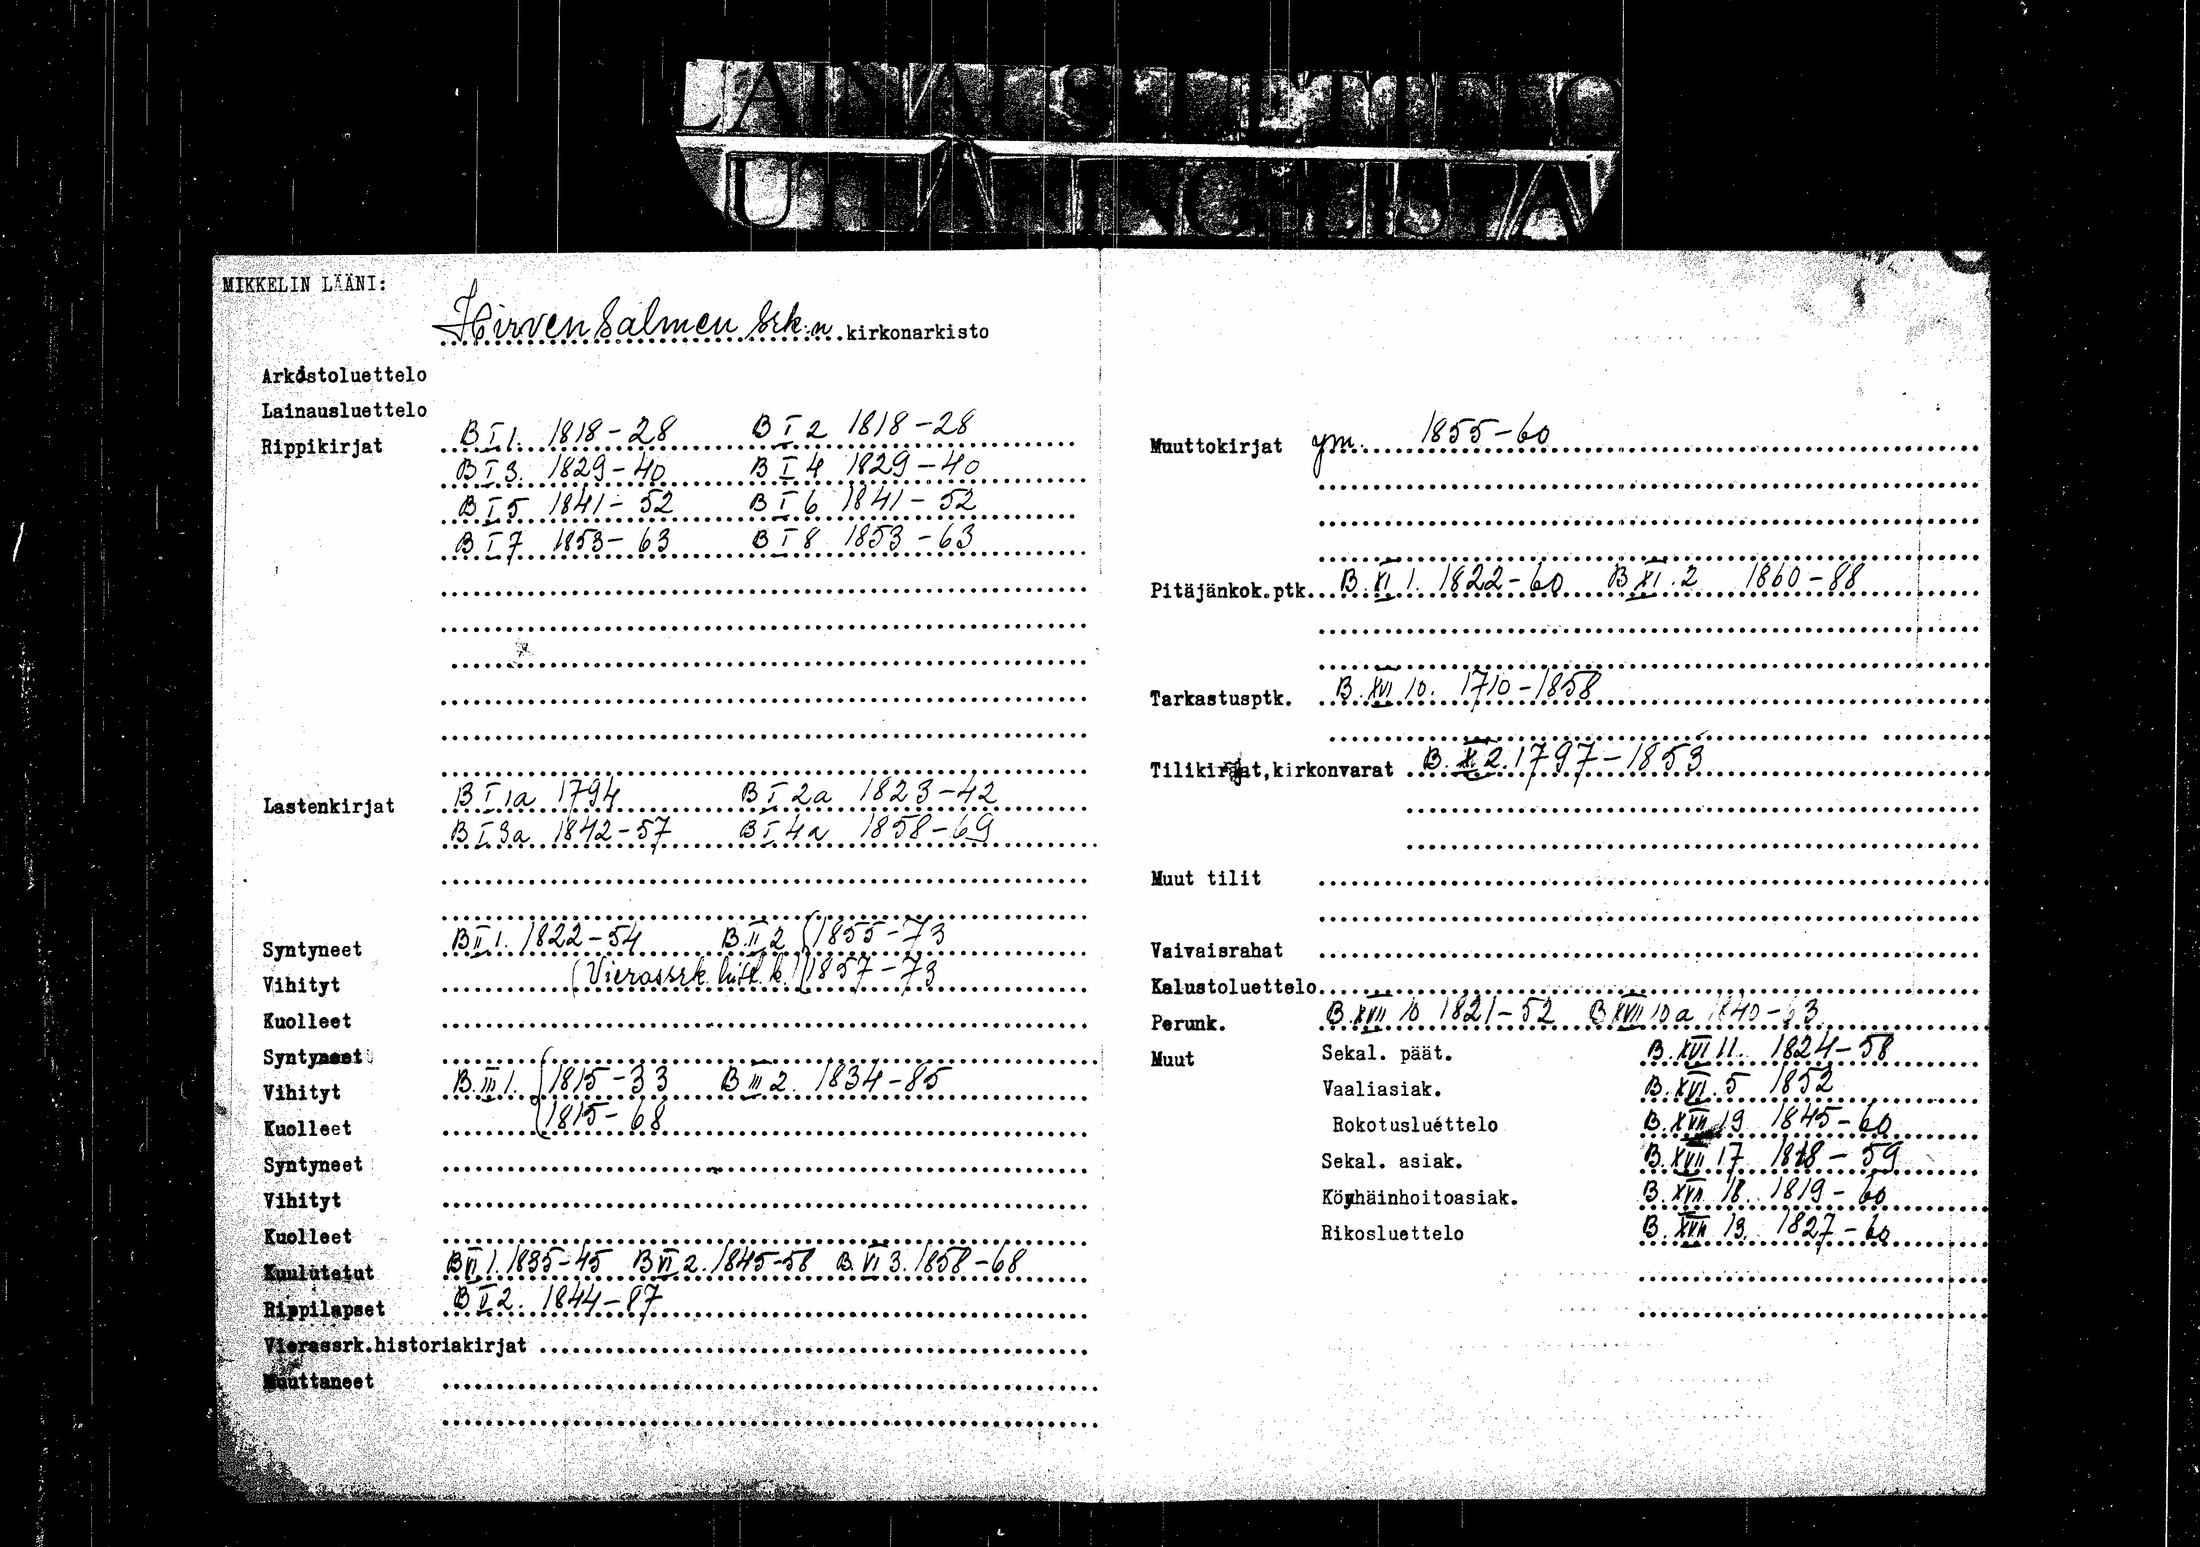 LAINAUSLUETTELO
UTLÅNINGSLISTA
MIKKELIN LÄÄNI:
Hirvensalmen srk:n kirkonarkisto
Arkistoluettelo
Lainausluettelo
Rippikirjat B I 1. 1818-28 B I 2 1818-28
B I 3. 1829-40 B I 4 1829-40
B I 5 1841-52 B I 6 1841-52
B I 7 1853-63 B I 8 1853-63
Lastenkirjat B I 1a 1794 B I 2a 1823-42
B I 3a 1842-57 B I 4a 1858-69
Syntyneet B II 1. 1822-54 B II 2 (1855-73
Vihityt (Vierassrk. hist.k.) (1857-73
Kuolleet
Syntyneet
Vihityt B III 1. (1815-33 B III 2. 1834-85
Kuolleet (1815-68
Syntyneet
Vihityt
Kuolleet
Kuulutetut B VI 1. 1835-45 B VI 2. 1845-58 B VI 3. 1858-68
Rippilapset B V 2. 1844-87
Vierassrk.historiakirjat
Muuttaneet
Muuttokirjat ym. 1855-60
Pitäjänkok.ptk. B XI 1. 1822-60 B XI. 2 1860-88
Tarkastusptk. B. XVI 10. 1710-1858
Tilikirjat,kirkonvarat B. 2. 1797-1853
Muut tilit
Vaivaisrahat
Kalustoluettelo
Perunk. B. XVII 10 1821-52 B XVII 10a 1840-63
Muut Sekal. päät. B. XVI 11. 1824-58
Vaaliasiak. B. XVI. 5 1852
Rokotusluettelo B. XVII 19 1845-60
Sekal. asiak. B. XVII 17 1818-59
Köyhäinhoitoasiak. B. XVII 18. 1819-60
Rikosluettelo B. XVII 13. 1827-60